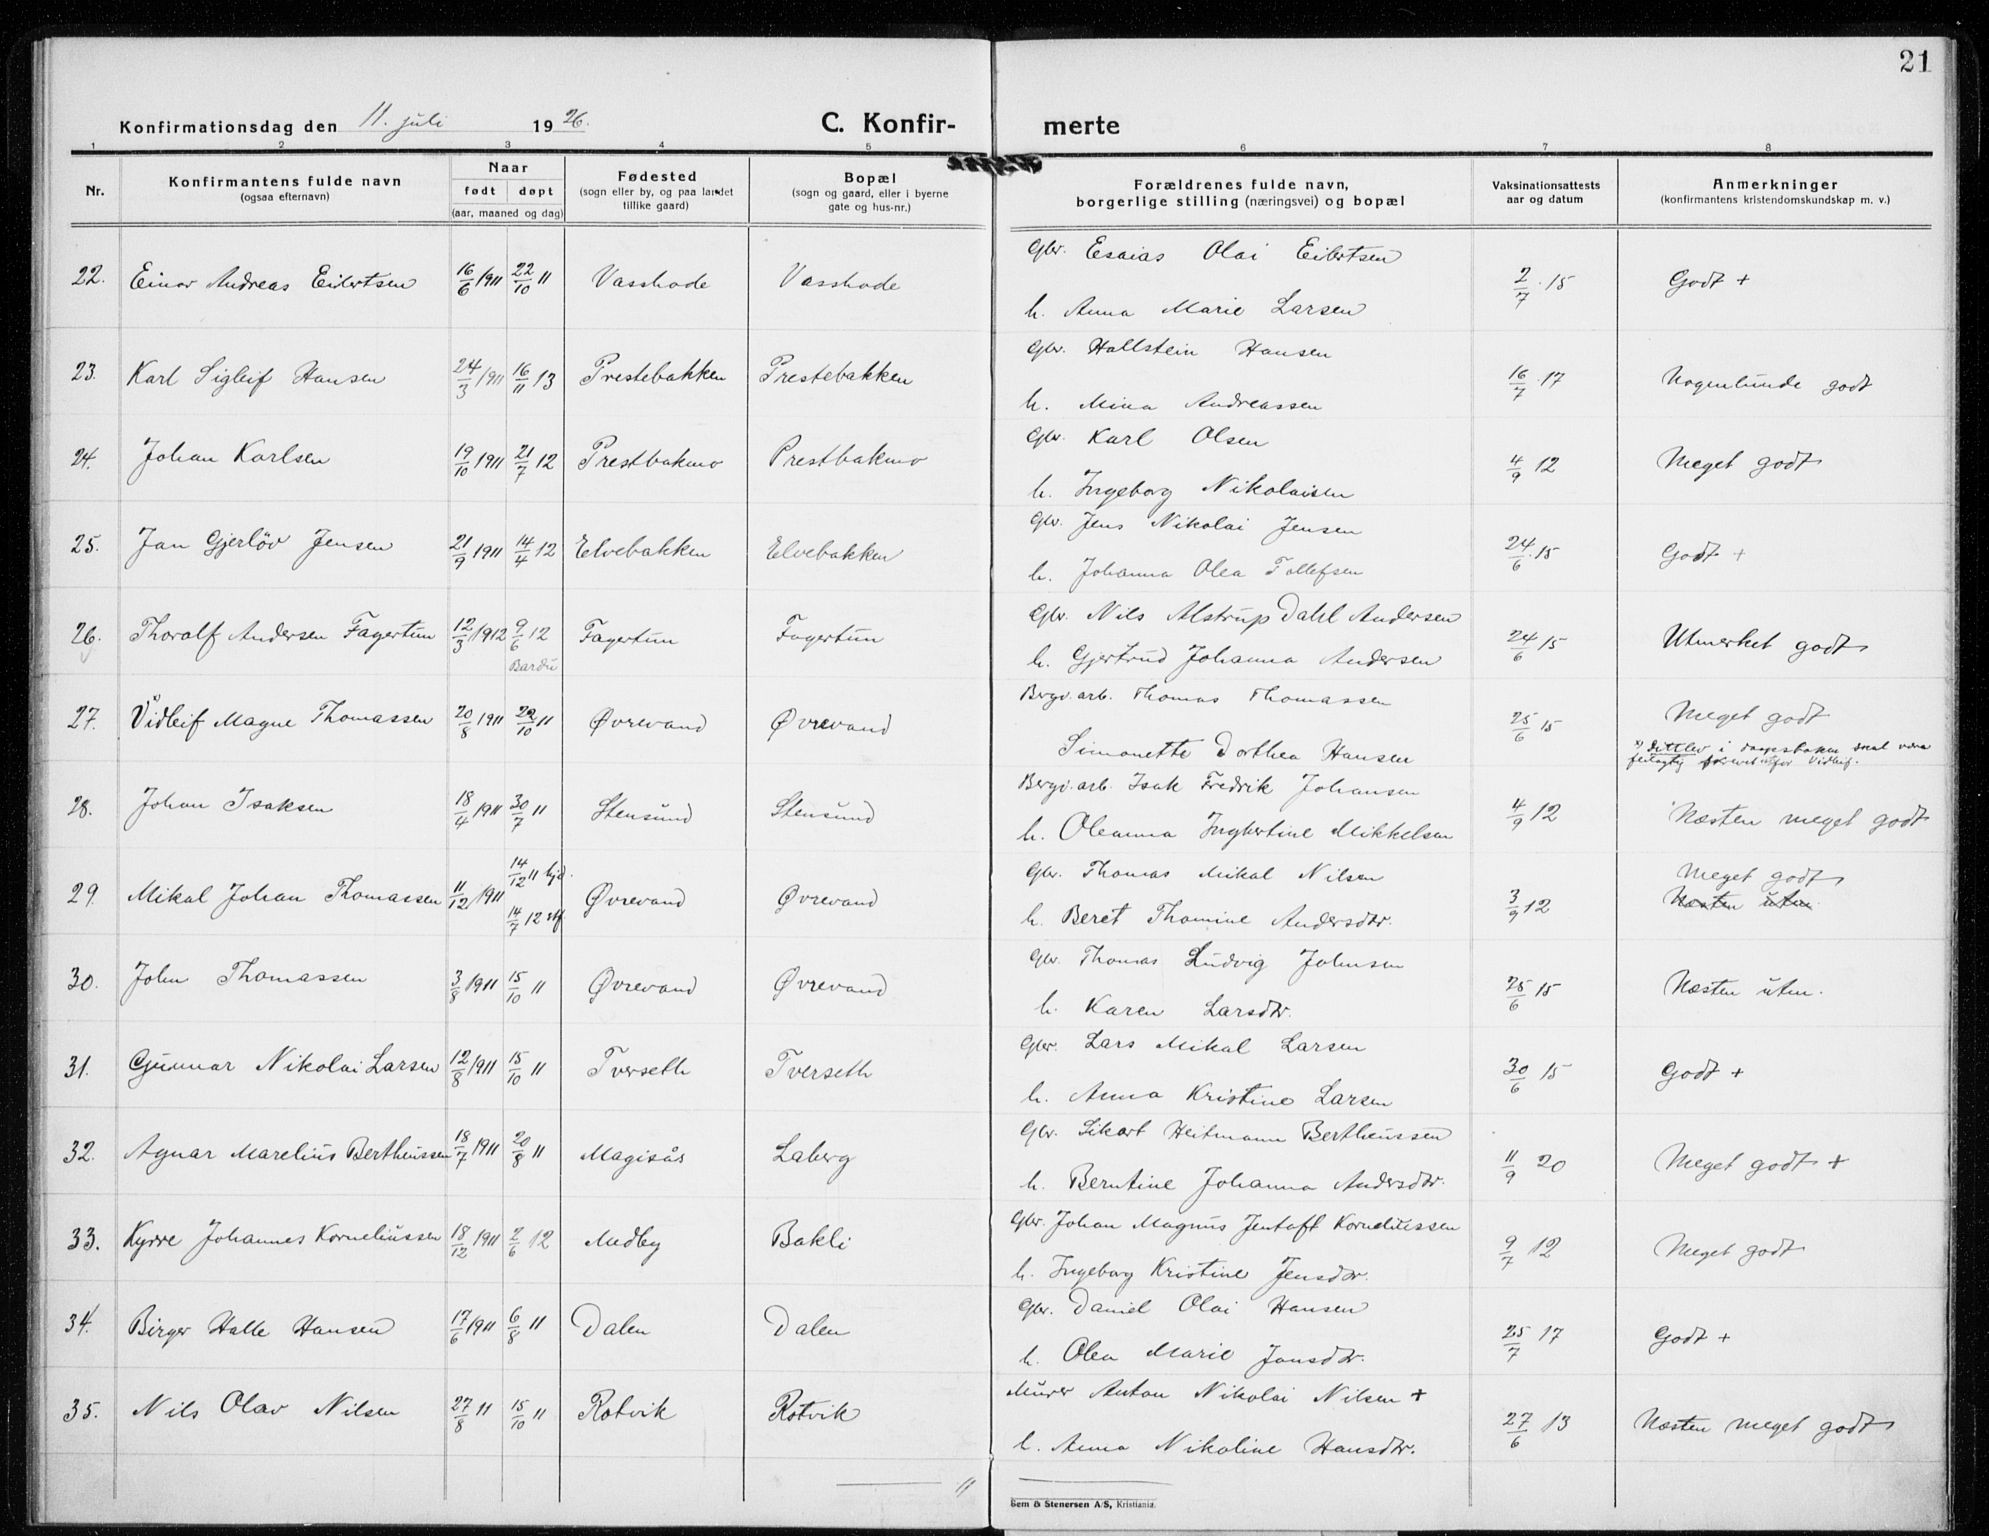 21
Konfirmationsdag den 11. juli 1926.
C. Konfir- merte
1 2 3 4 5 6 7 8
Nr. Konfirmantens fulde navn (ogsaa efternavn) Naar født døpt (aar, maaned og dag) Fødested (sogn eller by, og paa landet tillike gaard) Bopæl (sogn og gaard, eller i byerne gate og hus-nr.) Forældrenes fulde navn, borgerlige stilling (næringsvei) og bopæl Vaksinationsattests aar og datum Anmerkninger (konfirmantens kristendomskundskap m. v.)
Gbr. Esaias Olai Eibertsen
22. Einar Andreas Eibertsen 16/6 1911 22/10 11 Vasshode Vasshode 2/7 15 Godt +
h. Anna Marie Larsen
Gbr. Hallstein Hansen
23. Karl Sigleif Hansen 24/3 1911 16/11 13 Prestebakken Prestebakken 16/7 17 Nogenlunde godt
h. Mina Andreassen
Gbr. Karl Olsen
24. Johan Karlsen 19/10 1911 21/7 12 Prestbakmo Prestbakmo 4/9 12 Meget godt
h. Ingeborg Nikolaisen
Gbr. Jens Nikolai Jensen
25. Jan Gjerløv Jensen 21/9 1911 14/4 12 Elvebakken Elvebakken 24/6 15 Godt +
h. Johanna Olea Tollefsen
Gbr. Nils Alstrup Dahl Andersen
26. Thoralf Andersen Fagertun 12/3 1912 9/6 12 Fagertun Fagertun 24/6 15 Utmerket godt
Bardu h. Gjertrud Johanna Andersen
Bergv. arb. Thomas Thomassen
27. Vidleif Magne Thomassen 20/8 1911 22/10 11 Øvrevand Øvrevand 25/6 15 Meget godt
Simonette Dorthea Hansen x) Dittlev i daapsboken skal være
feilagtig skrevet for Vidleif.
Bergv. arb. Isak Fredrik Johansen
28. Johan Isaksen 18/4 1911 30/7 11 Stensund Stensund 4/9 12 Næsten meget godt
h. Oleanna Ingbertine Mikkelsen
14/12 11 hjd. Gbr. Thomas Mikal Nilsen Meget godt
29. Mikal Johan Thomassen 11/12 1911 Øvrevand Øvrevand 3/9 12 Næsten utm.
14/7 12 stf h. Beret Thomine Andersdtr.
Gbr. Thomas Ludvig Johnsen
30. John Thomassen 3/8 1911 15/10 11 Øvrevand Øvrevand 25/6 15 Næsten utm.
h. Karen Larsdtr.
Gbr. Lars Mikal Larsen
31. Gunnar Nikolai Larsen 12/8 1911 15/10 11 Tverseth Tverseth 30/6 15 Godt +
h. Anna Kristine Larsen
Gbr. Sikart Heitmann Bertheussen
32. Agnar Marelius Bertheussen 18/7 1911 20/8 11 Magisås Laberg 11/9 20 Meget godt +
h. Berntine Johanna Andersdtr.
Gbr. Johan Magnus Jentoft Korneliussen
33. Kyrre Johannes Korneliussen 18/12 1911 2/6 12 Medby Bakli 9/7 12 Meget godt
h. Ingeborg Kristine Jensdtr.
Gbr. Daniel Olai Hansen
34. Birger Halle Hansen 17/6 1911 6/8 11 Dalen Dalen 25/7 17 Godt +
h. Olea Marie Jonsdtr.
Murer Anton Nikolai Nilsen +
35. Nils Olav Nilsen 27/8 11 15/10 11 Rotvik Rotvik 27/6 13 Næsten meget godt
h. Anna Nikoline Hansdtr.
Sem & Stenersen A/S, Kristiania.